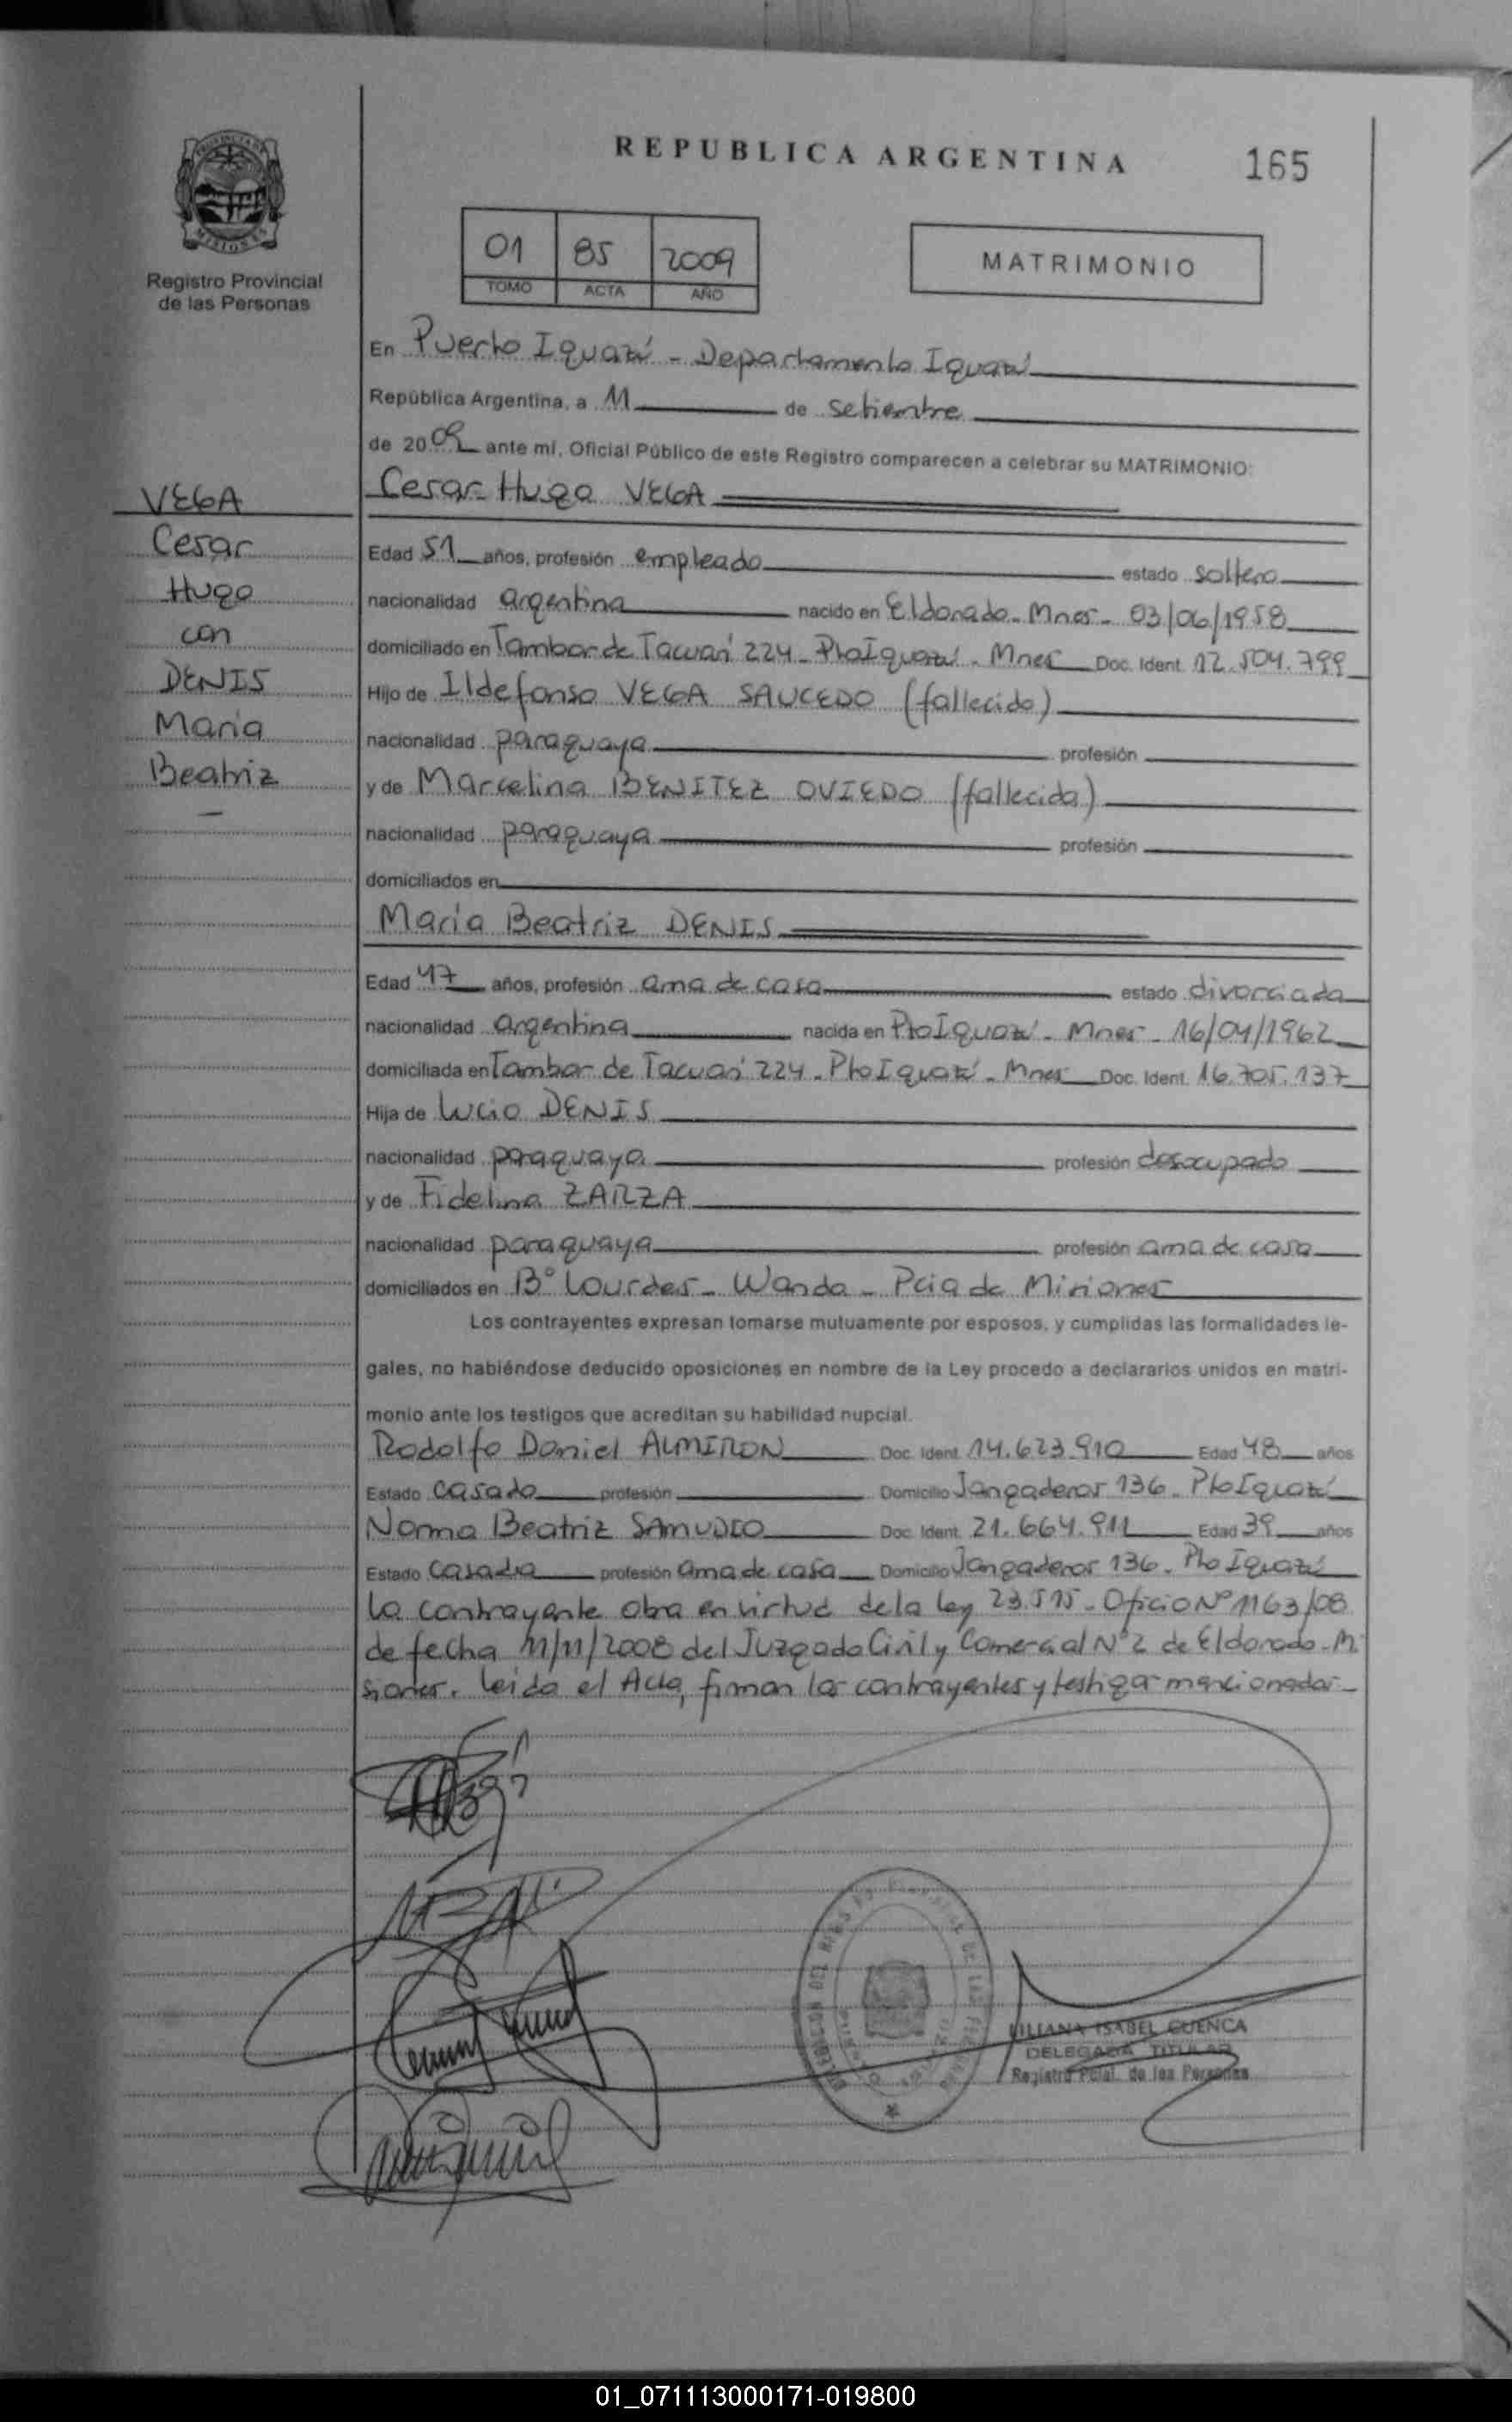 REPUBLICA ARGENTINA
165
PROVINCIA DE
MISIONES
Registro Provincial
de las Personas
01 85 2009
TOMO ACTA AÑO
MATRIMONIO
En Puerto Iguazú - Departamento Iguazú
República Argentina, a 11 de setiembre
de 2009 ante mí, Oficial Público de este Registro comparecen a celebrar su MATRIMONIO:
Cesar Hugo VEGA
VEGA
Cesar
Hugo
con
DENIS
Maria
Beatriz
Edad 51 años, profesión empleado estado soltero
nacionalidad argentina nacido en Eldorado - Mnes - 03/06/1958
domiciliado en Tambor de Tacuarí 224 - Pto Iguazú - Mnes Doc. Ident. 12.504.799
Hijo de Ildefonso VEGA SAUCEDO (fallecido)
nacionalidad paraguaya profesión
y de Marcelina BENITEZ OVIEDO (fallecida)
nacionalidad paraguaya profesión
domiciliados en
Maria Beatriz DENIS
Edad 47 años, profesión ama de casa estado divorciada
nacionalidad argentina nacida en Pto Iguazú - Mnes - 16/04/1962
domiciliada en Tambor de Tacuarí 224 - Pto Iguazú - Mnes Doc. Ident. 16.705.137
Hija de Lucio DENIS
nacionalidad paraguaya profesión desocupado
y de Fidelina ZARZA
nacionalidad paraguaya profesión ama de casa
domiciliados en B° Lourdes - Wanda - Pcia de Misiones
Los contrayentes expresan tomarse mutuamente por esposos, y cumplidas las formalidades le-
gales, no habiéndose deducido oposiciones en nombre de la Ley procedo a declararlos unidos en matri-
monio ante los testigos que acreditan su habilidad nupcial.
Rodolfo Daniel ALMIRON Doc. Ident. 14.623.910 Edad 48 años
Estado casado profesión Domicilio Jangaderos 136 - Pto Iguazú
Norma Beatriz SAMUDIO Doc. Ident. 21.664.911 Edad 39 años
Estado casada profesión ama de casa Domicilio Jangaderos 136 - Pto Iguazú
La contrayente obra en virtud de la ley 23.515 - Oficio N° 1163/08
de fecha 11/11/2008 del Juzgado Civil y Comercial N° 2 de Eldorado - Mi
siones. Leida el Acta, firman los contrayentes y testigos mencionados -
LILIANA ISABEL CUENCA
DELEGADA TITULAR
Registro Pcial. de las Personas
01_071113000171-019800